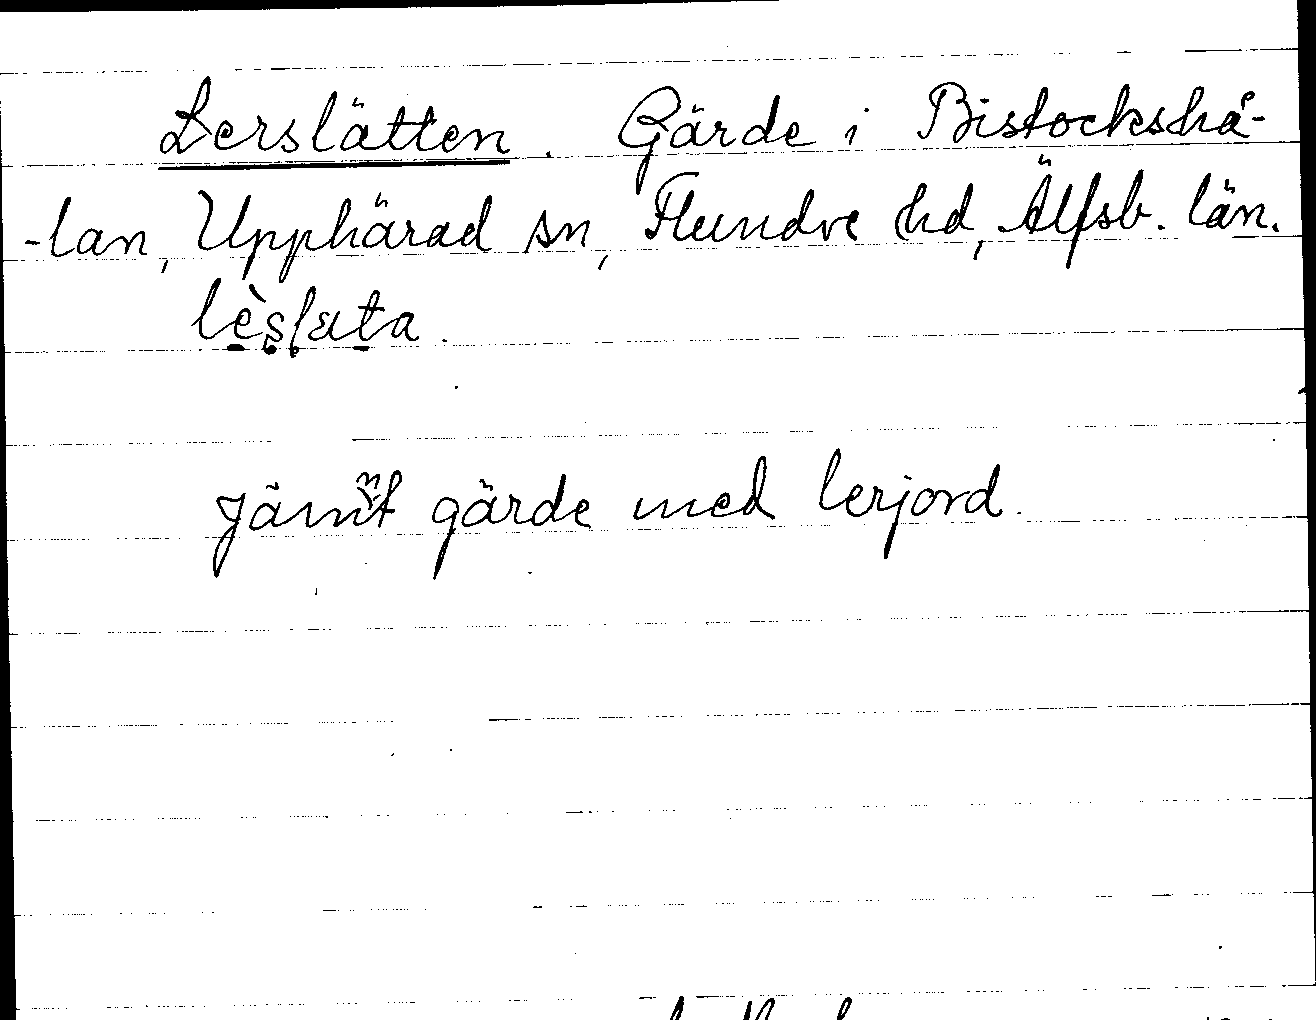 Lerslätten. Gärde i Bistockshå-
-lan, Upphärad sn, Flundre hd, Älfsb. län.
lèslæta.
jämnt gärde med lerjord.